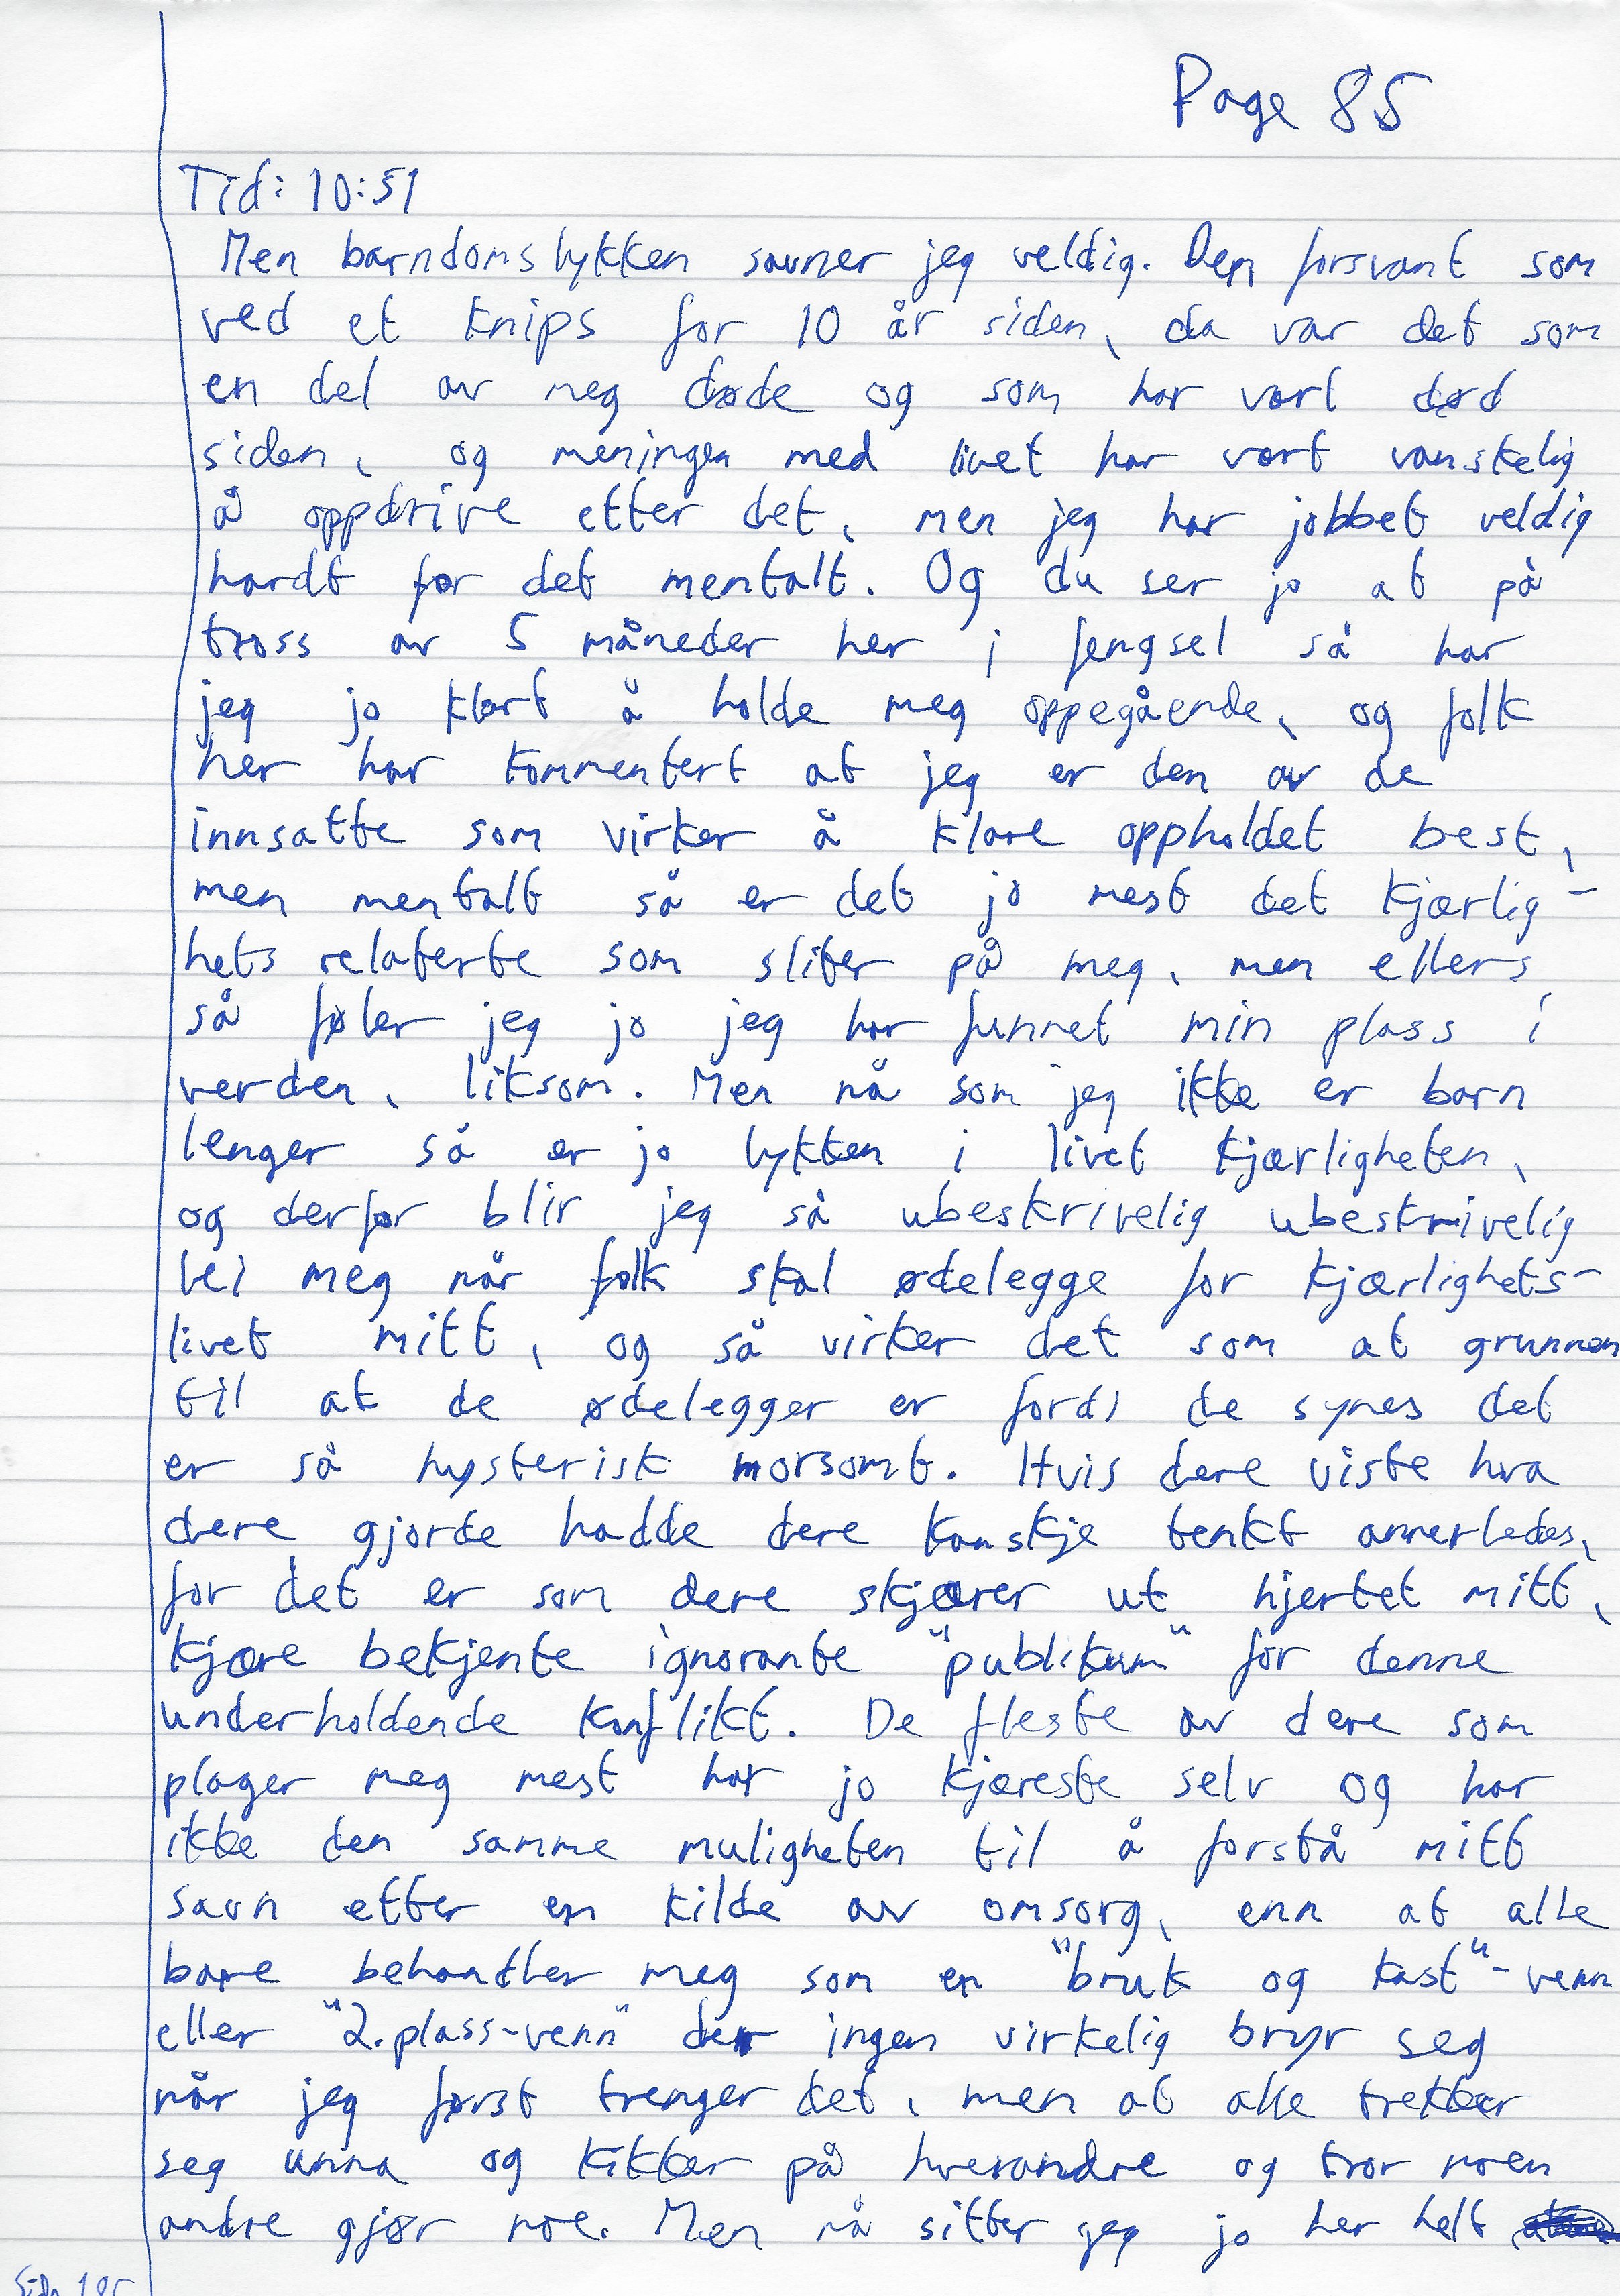 Page 85
Tid: 10:51
Men barndomslykken savner jeg veldig. Den forsvant som
ved et knips for 10 år siden, da var det som
en del av meg døde og som har vært død
siden, og meningen med livet har vært vanskelig
å oppdrive etter det, men jeg har jobbet veldig
hardt for det mentalt. Og du ser jo at på
tross av 5 måneder her i fengsel så har
jeg jo klart å holde meg oppegående, og folk
her har kommentert at jeg er den av de
innsatte som virker å klare oppholdet best,
men mentalt så er det jo mest det kjærlig-
hets relaterte som sliter på meg, men ellers
så føler jeg jo jeg har funnet min plass i
verden, liksom. Men nå som jeg ikke er barn
lenger så er jo lykken i livet kjærligheten,
og derfor blir jeg så ubeskrivelig ubeskrivelig
lei meg når folk skal ødelegge for kjærlighets-
livet mitt, og så virker det som at grunnen
til at de ødelegger er fordi de synes det
er så hysterisk morsomt. Hvis dere viste hva
dere gjorde hadde dere kanskje tenkt annerledes,
for det er som dere skjærer ut hjertet mitt,
kjære bekjente ignorante "publikum" for denne
underholdende konflikt. De fleste av dere som
plager meg mest har jo kjæreste selv og har
ikke den samme muligheten til å forstå mitt
savn etter en kilde av omsorg, enn at alle
bare behandler meg som en "bruk og kast"-venn
eller "2.plass-venn" der ingen virkelig bryr seg
når jeg først trenger det, men at alle trekker
seg unna og kikker på hverandre og tror noen
andre gjør noe. Men nå sitter jeg jo her helt